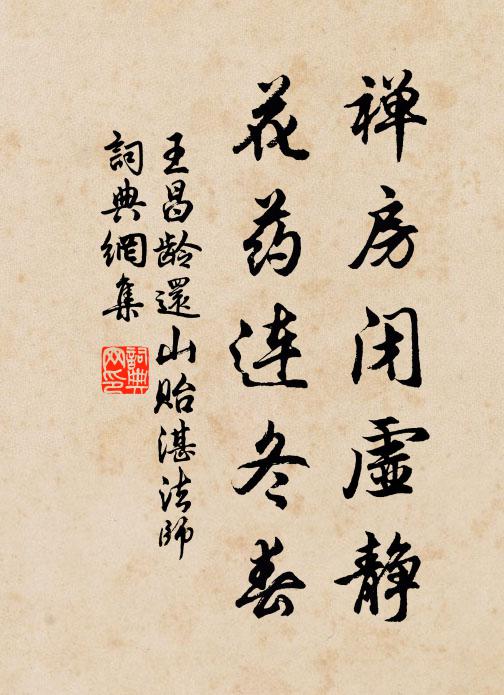 禅房闭虚静
花药连冬春
王昌龄還山贻湛法師
詞典網集
詞典网印